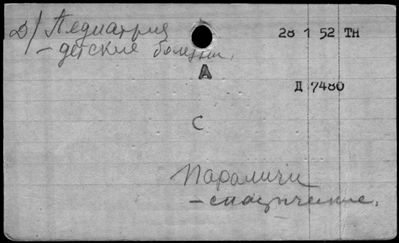 Д/ Педиатрия
28 1 52 Тн
– детские болезни.
А
Д 7480
С
Параличи
– спастические.